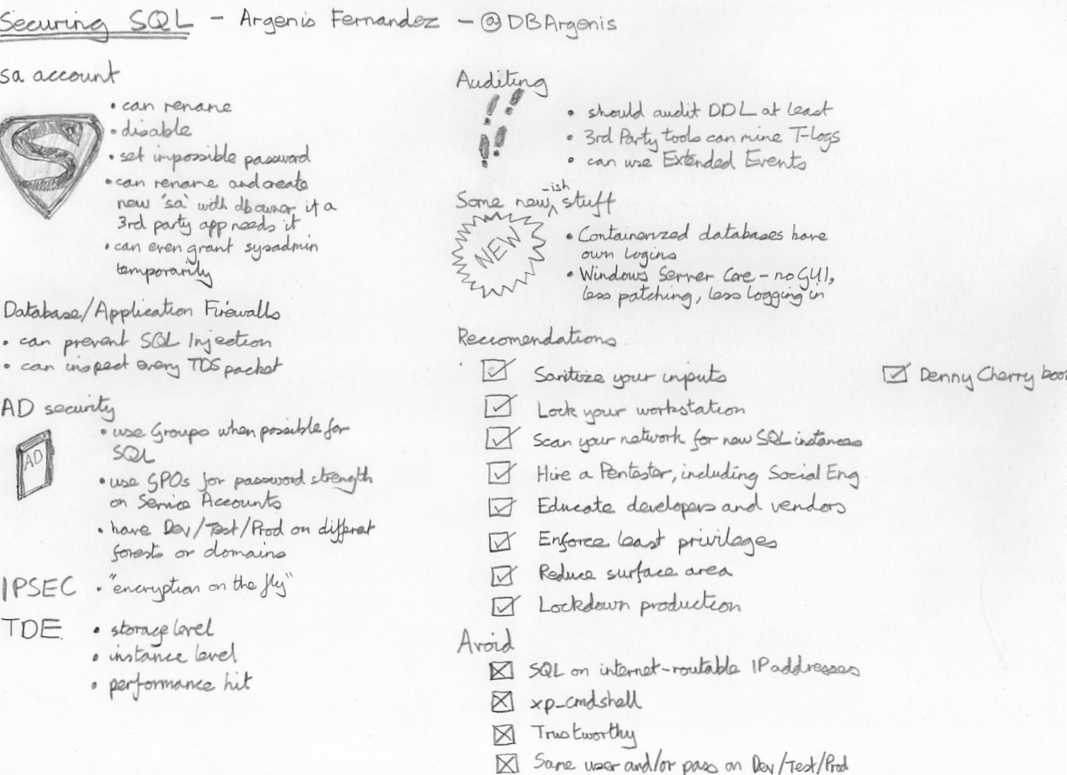 Securing SQL - Argenis Fernandez - @DBArgenis
sa account
• can rename
• disable
• set impossible password
• can rename and create
new 'sa' with dbowner if a
3rd party app needs it
• can even grant sysadmin
temporarily
Database/Application Firewalls
• can prevent SQL Injection
• can inspect every TDS packet
AD security
AD
• use Groups when possible for
SQL
• use GPOs for password strength
on Service Accounts
• have Dev/Test/Prod on different
forests or domains
IPSEC • "encryption on the fly"
TDE • storage level
• instance level
• performance hit
Auditing
• should audit DDL at least
• 3rd Party tools can mine T-logs
• can use Extended Events
Some new-ish stuff
NEW
• Containerized databases have
own logins
• Windows Server Core - no GUI,
less patching, less logging in
Reccomendations
Sanitize your inputs
Lock your workstation
Scan your network for new SQL instances
Hire a Pentester, including Social Eng.
Educate developers and vendors
Enforce least privileges
Reduce surface area
Lockdown production
Denny Cherry boo
Avoid
SQL on internet-routable IP addresses
xp_cmdshell
Trustworthy
Same user and/or pass on Dev/Test/Prod